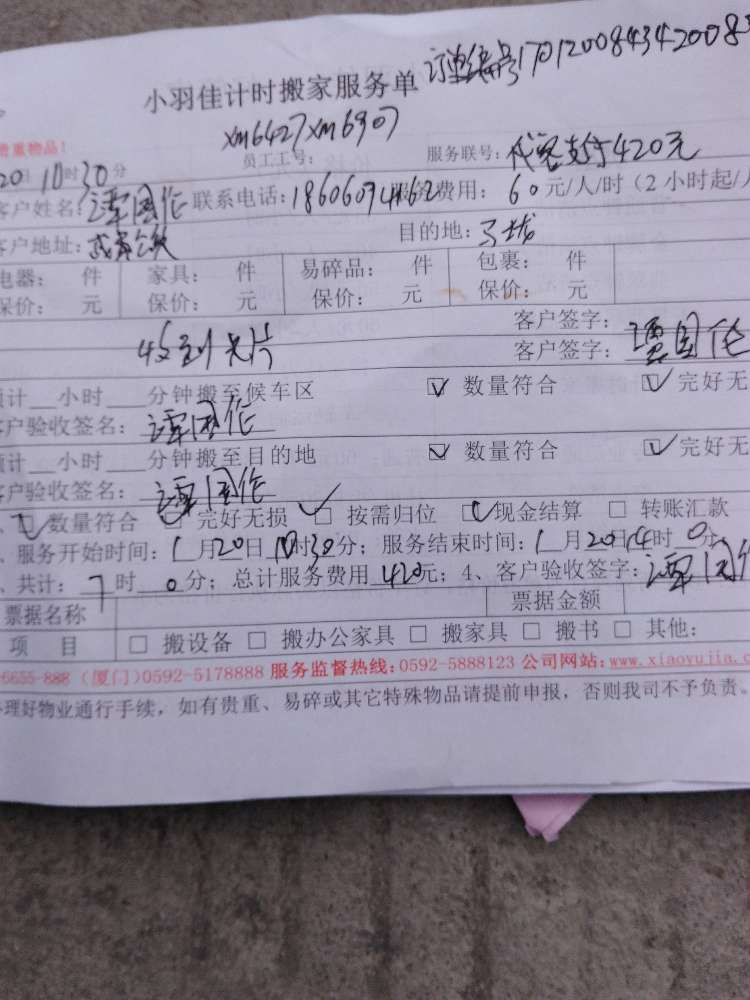 小羽佳计时搬家服务单 订单编号170120084342008
xm6427 xm6907
贵重物品!
员工工号: 服务联号: 代客支付420元
20 10时30分
客户姓名: 谭国伦 联系电话: 服务费用: 60元/人/时(2小时起/人
客户地址: 目的地:
电器: 件 家具: 件 易碎品: 件 包裹: 件
保价: 元 保价: 元 保价: 元 保价: 元
客户签字:
收到卡片 客户签字: 谭国伦
预计__小时___分钟搬至候车区 ☑ 数量符合 ☑ 完好无
客户验收签名: 谭国伦
预计__小时___分钟搬至目的地 ☑ 数量符合 ☑ 完好无
客户验收签名: 谭国伦
☑ 数量符合 ☑ 完好无损 ☑ 按需归位 ☑ 现金结算 □ 转账汇款
、服务开始时间: 1月20日10时30分; 服务结束时间: 1月20日14时0分
、共计: 7时0分; 总计服务费用420元; 4、客户验收签字: 谭国伦
票据名称 票据金额
项 目 □ 搬设备 □ 搬办公家具 □ 搬家具 □ 搬书 □ 其他:
6655-888 (厦门)0592-5178888 服务监督热线:0592-5888123 公司网站:www.xiaoyujia.c
办理好物业通行手续，如有贵重、易碎或其它特殊物品请提前申报，否则我司不予负责。